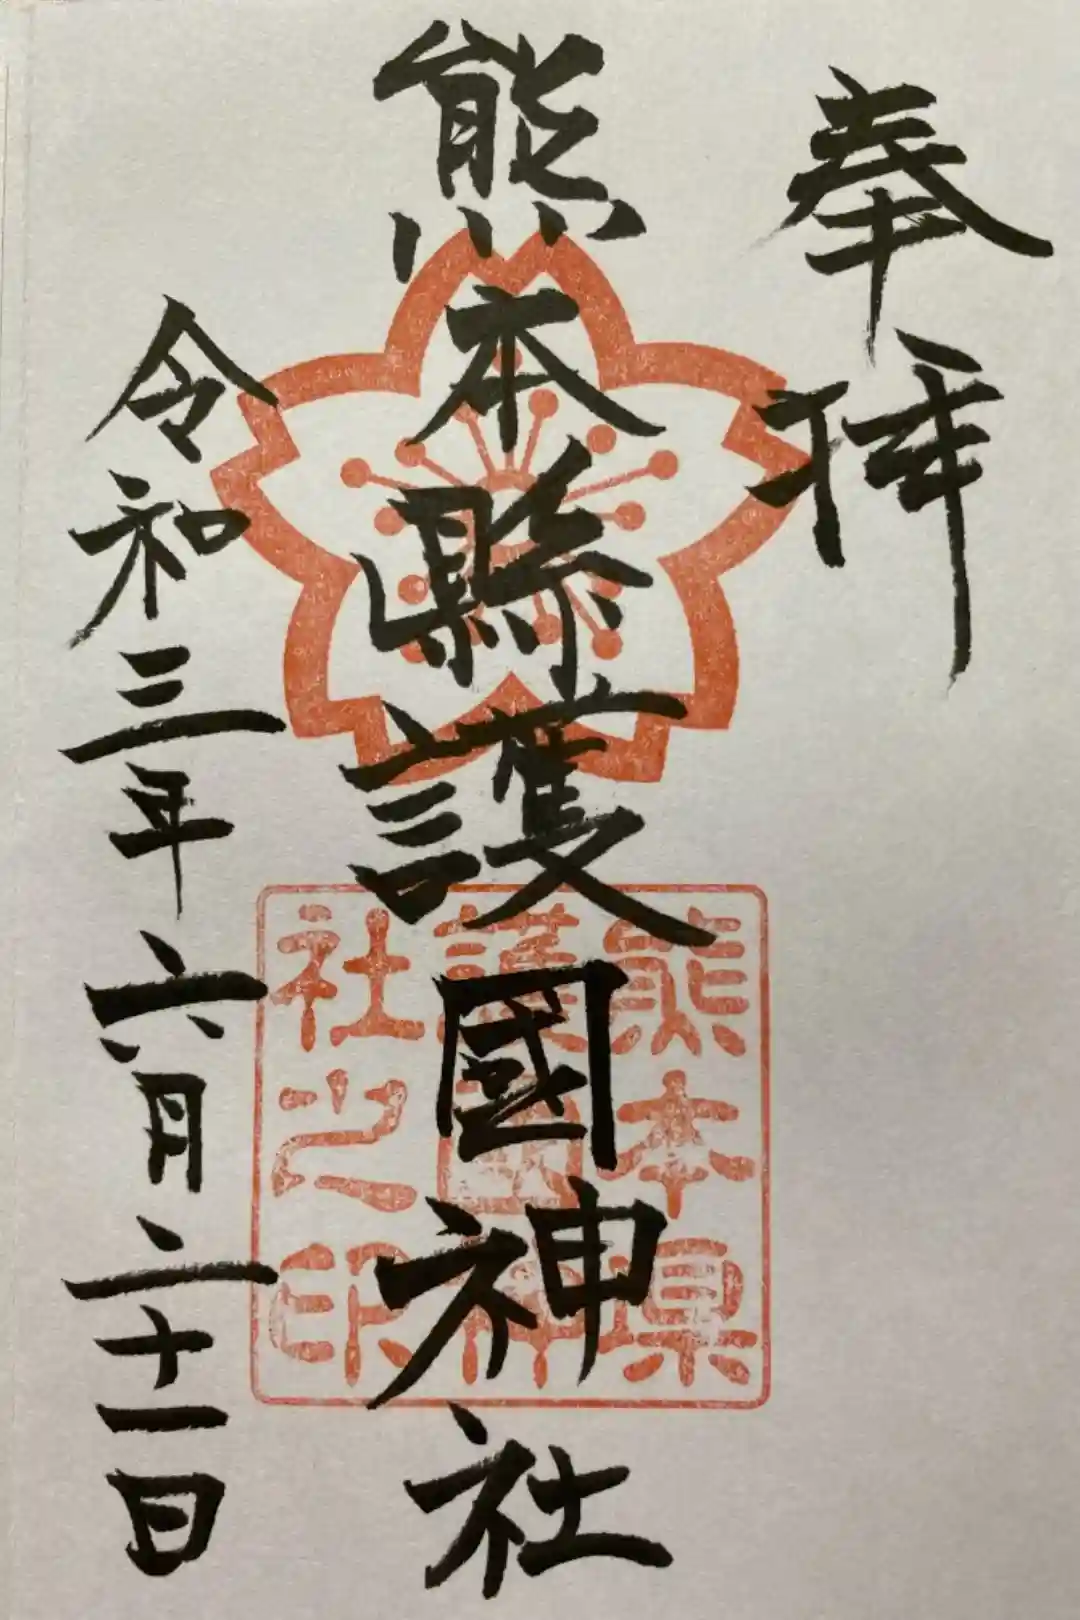 奉拝
熊本縣護國神社
令和三年六月二十一日
熊本県
護國神
社之印